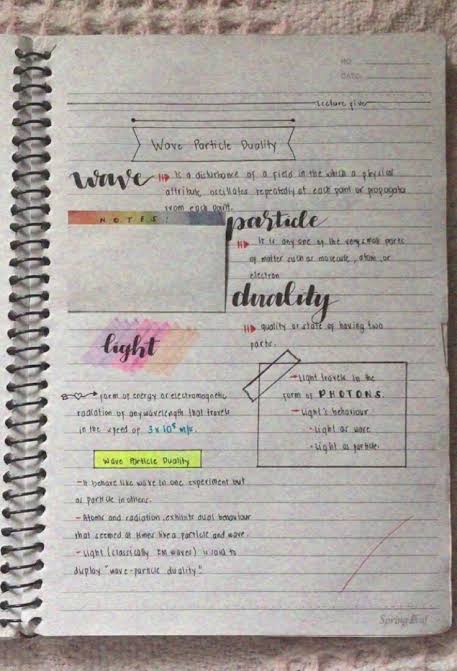 NO.
DATE:
Lecture five
Wave Particle Duality
wave
Is a disturbance of a field in the which a physical
attribute oscillates repeatedly at each point or propagates
from each point.
NOTES:
particle
It is any one of the very small parts
of matter such as molecule, atom, or
electron
duality
quality or state of having two
parts.
light
form of energy or electromagnetic
radiation of any wavelength that travels
in the speed of 3x10⁸ m/s.
Light travels in the
form of PHOTONS.
Light's behaviour
Light as wave
Light as particle.
Wave Particle Duality
- It behave like wave in one experiment but
as particle in others.
- Atomic and radiation exhibits dual behaviour
that seemed at times like a particle and wave.
- Light (classically EM waves) is said to
display "wave-particle duality".
Spring leaf